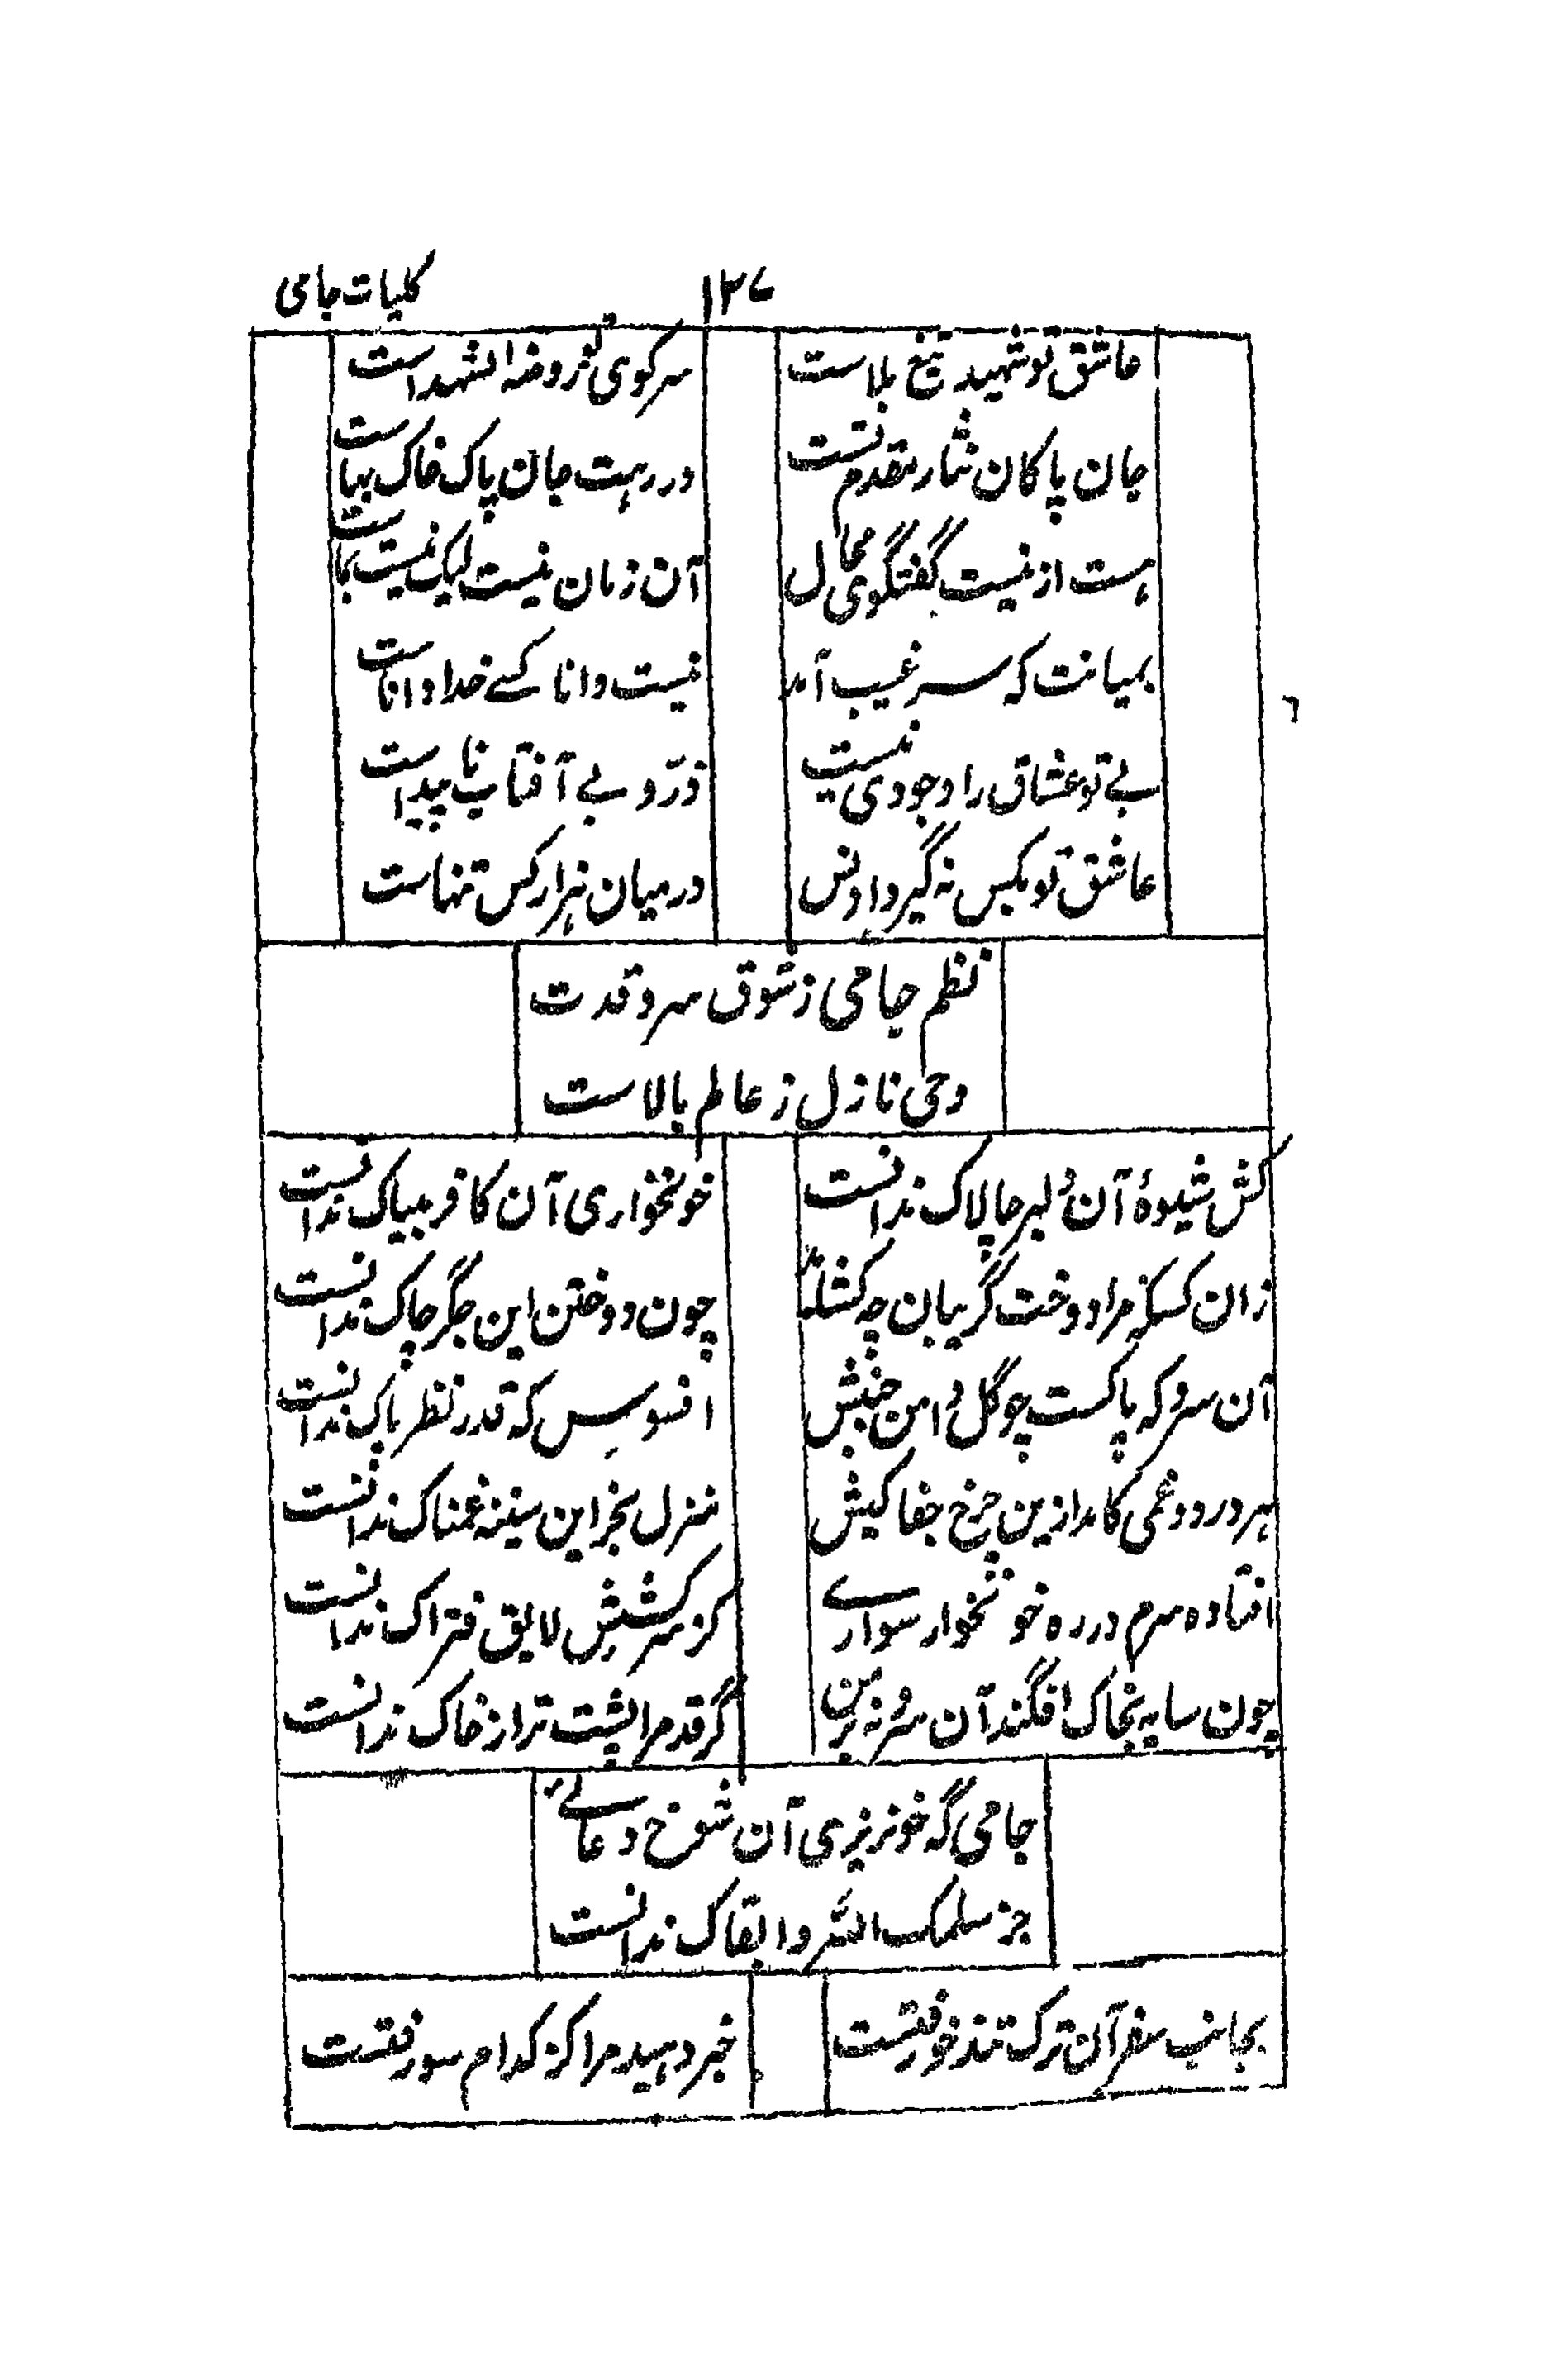 ۱۳۷ کلیات جامی
عاشق تو شهید تیغ بلاست سر کوی تو روضه الشهداست
جان پاکان نثار مقدم تست در رهت جان پاک خاک بهاست
هست از نیست گفتگوی محال آن زمان نیست لیک نیست بجاست
بمیانت که سر غیب آمد نیست دانا کسے خدا داناست
بے تو عشاق را وجودی نیست ذرّه بے آفتاب ناپیداست
عاشق تو بکس نه گیرد انس درمیان هزار کس تنهاست
نظم جامی ز شوق سرو قدت
وحی نازل ز عالم بالاست
کش شیوۀ آن دلبر چالاک ندانست خونخواری آن کافر بیباک ندانست
زان کسکه مرا دوخت گریبان چه کشاید چون دوختن این جگر چاک ندانست
آن سرو که پاکست چو گل دامن جنبش افسوس که قدر نظر پاک ندانست
هر درد و غمی کامد ازین چرخ جفا کیش منزل بجز این سینه غمناک ندانست
افتاده سرم در ره خونخوار سوارے کز سرکشیش لایق فتراک ندانست
چون سایه بخاک افگند آن سرو نه بر من گر قد مرا پشت تر از خاک ندانست
جامی گه خونریزی آن شوخ دعائے
جز سلمک اللہ و ابقاک ندانست
بجانب سفر آن ترک تندخو رفتست خبر دهید مرا کز کدام سو رفتست